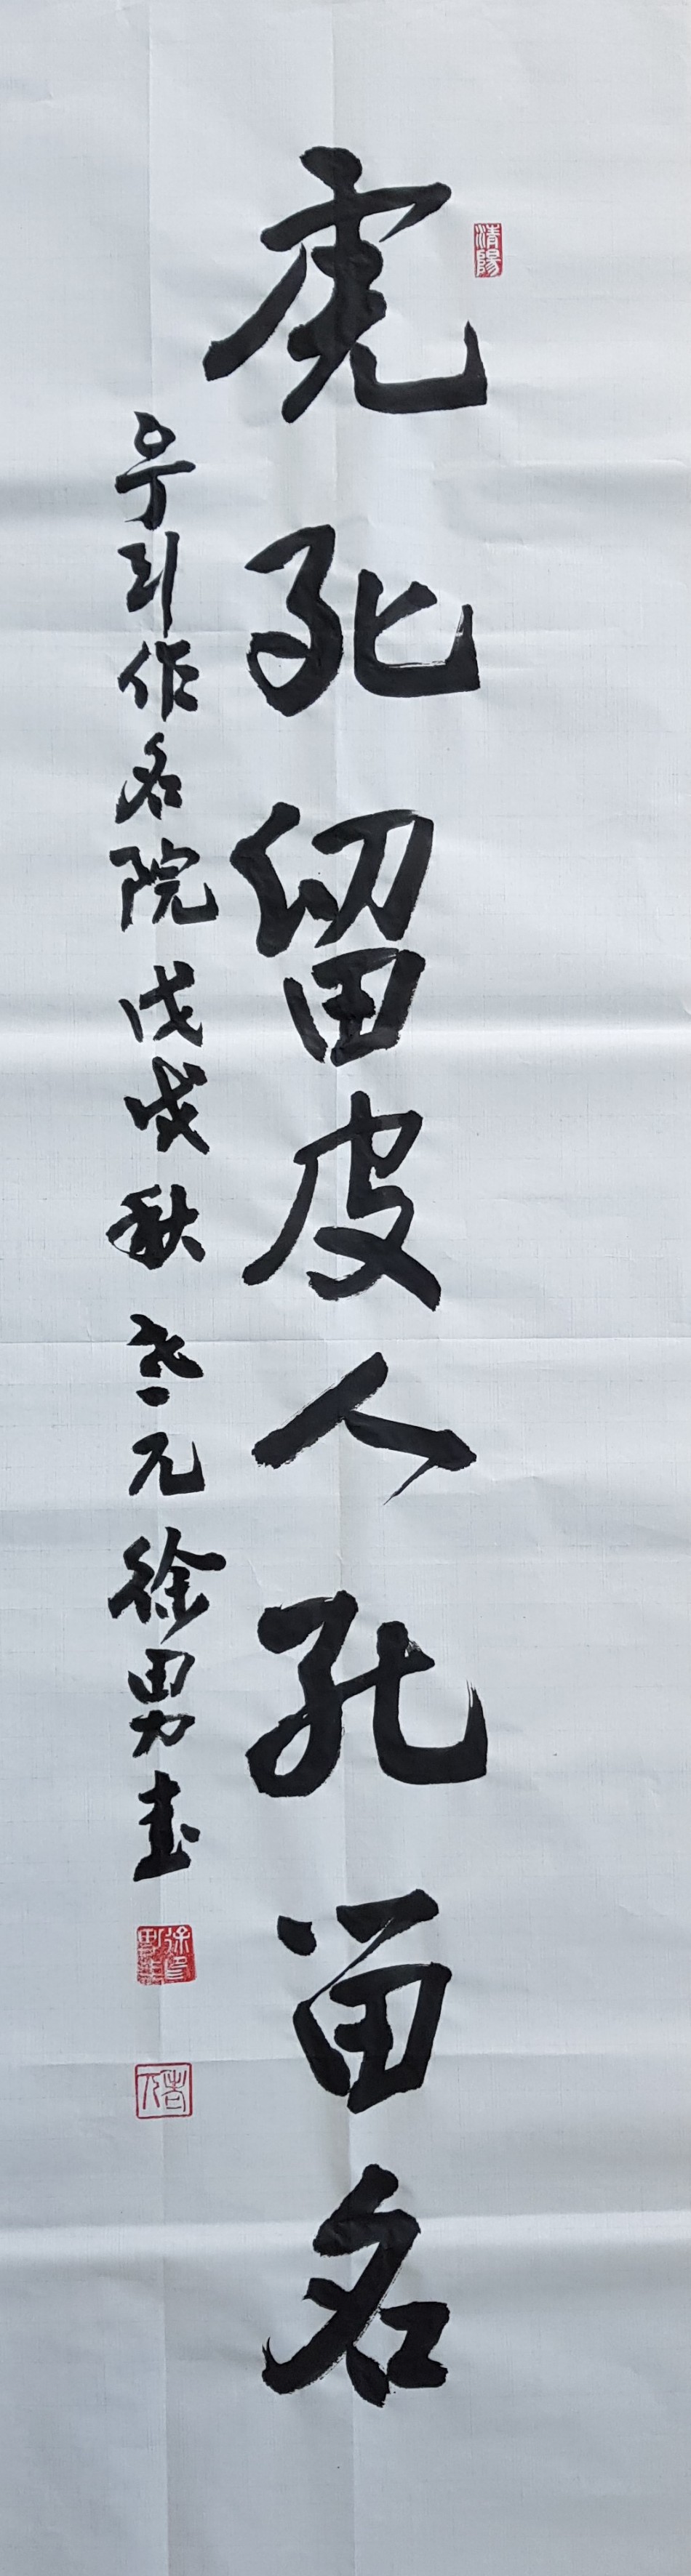 虎死留皮人死留名
우리作名院戊戌秋艺元徐男書
清陽